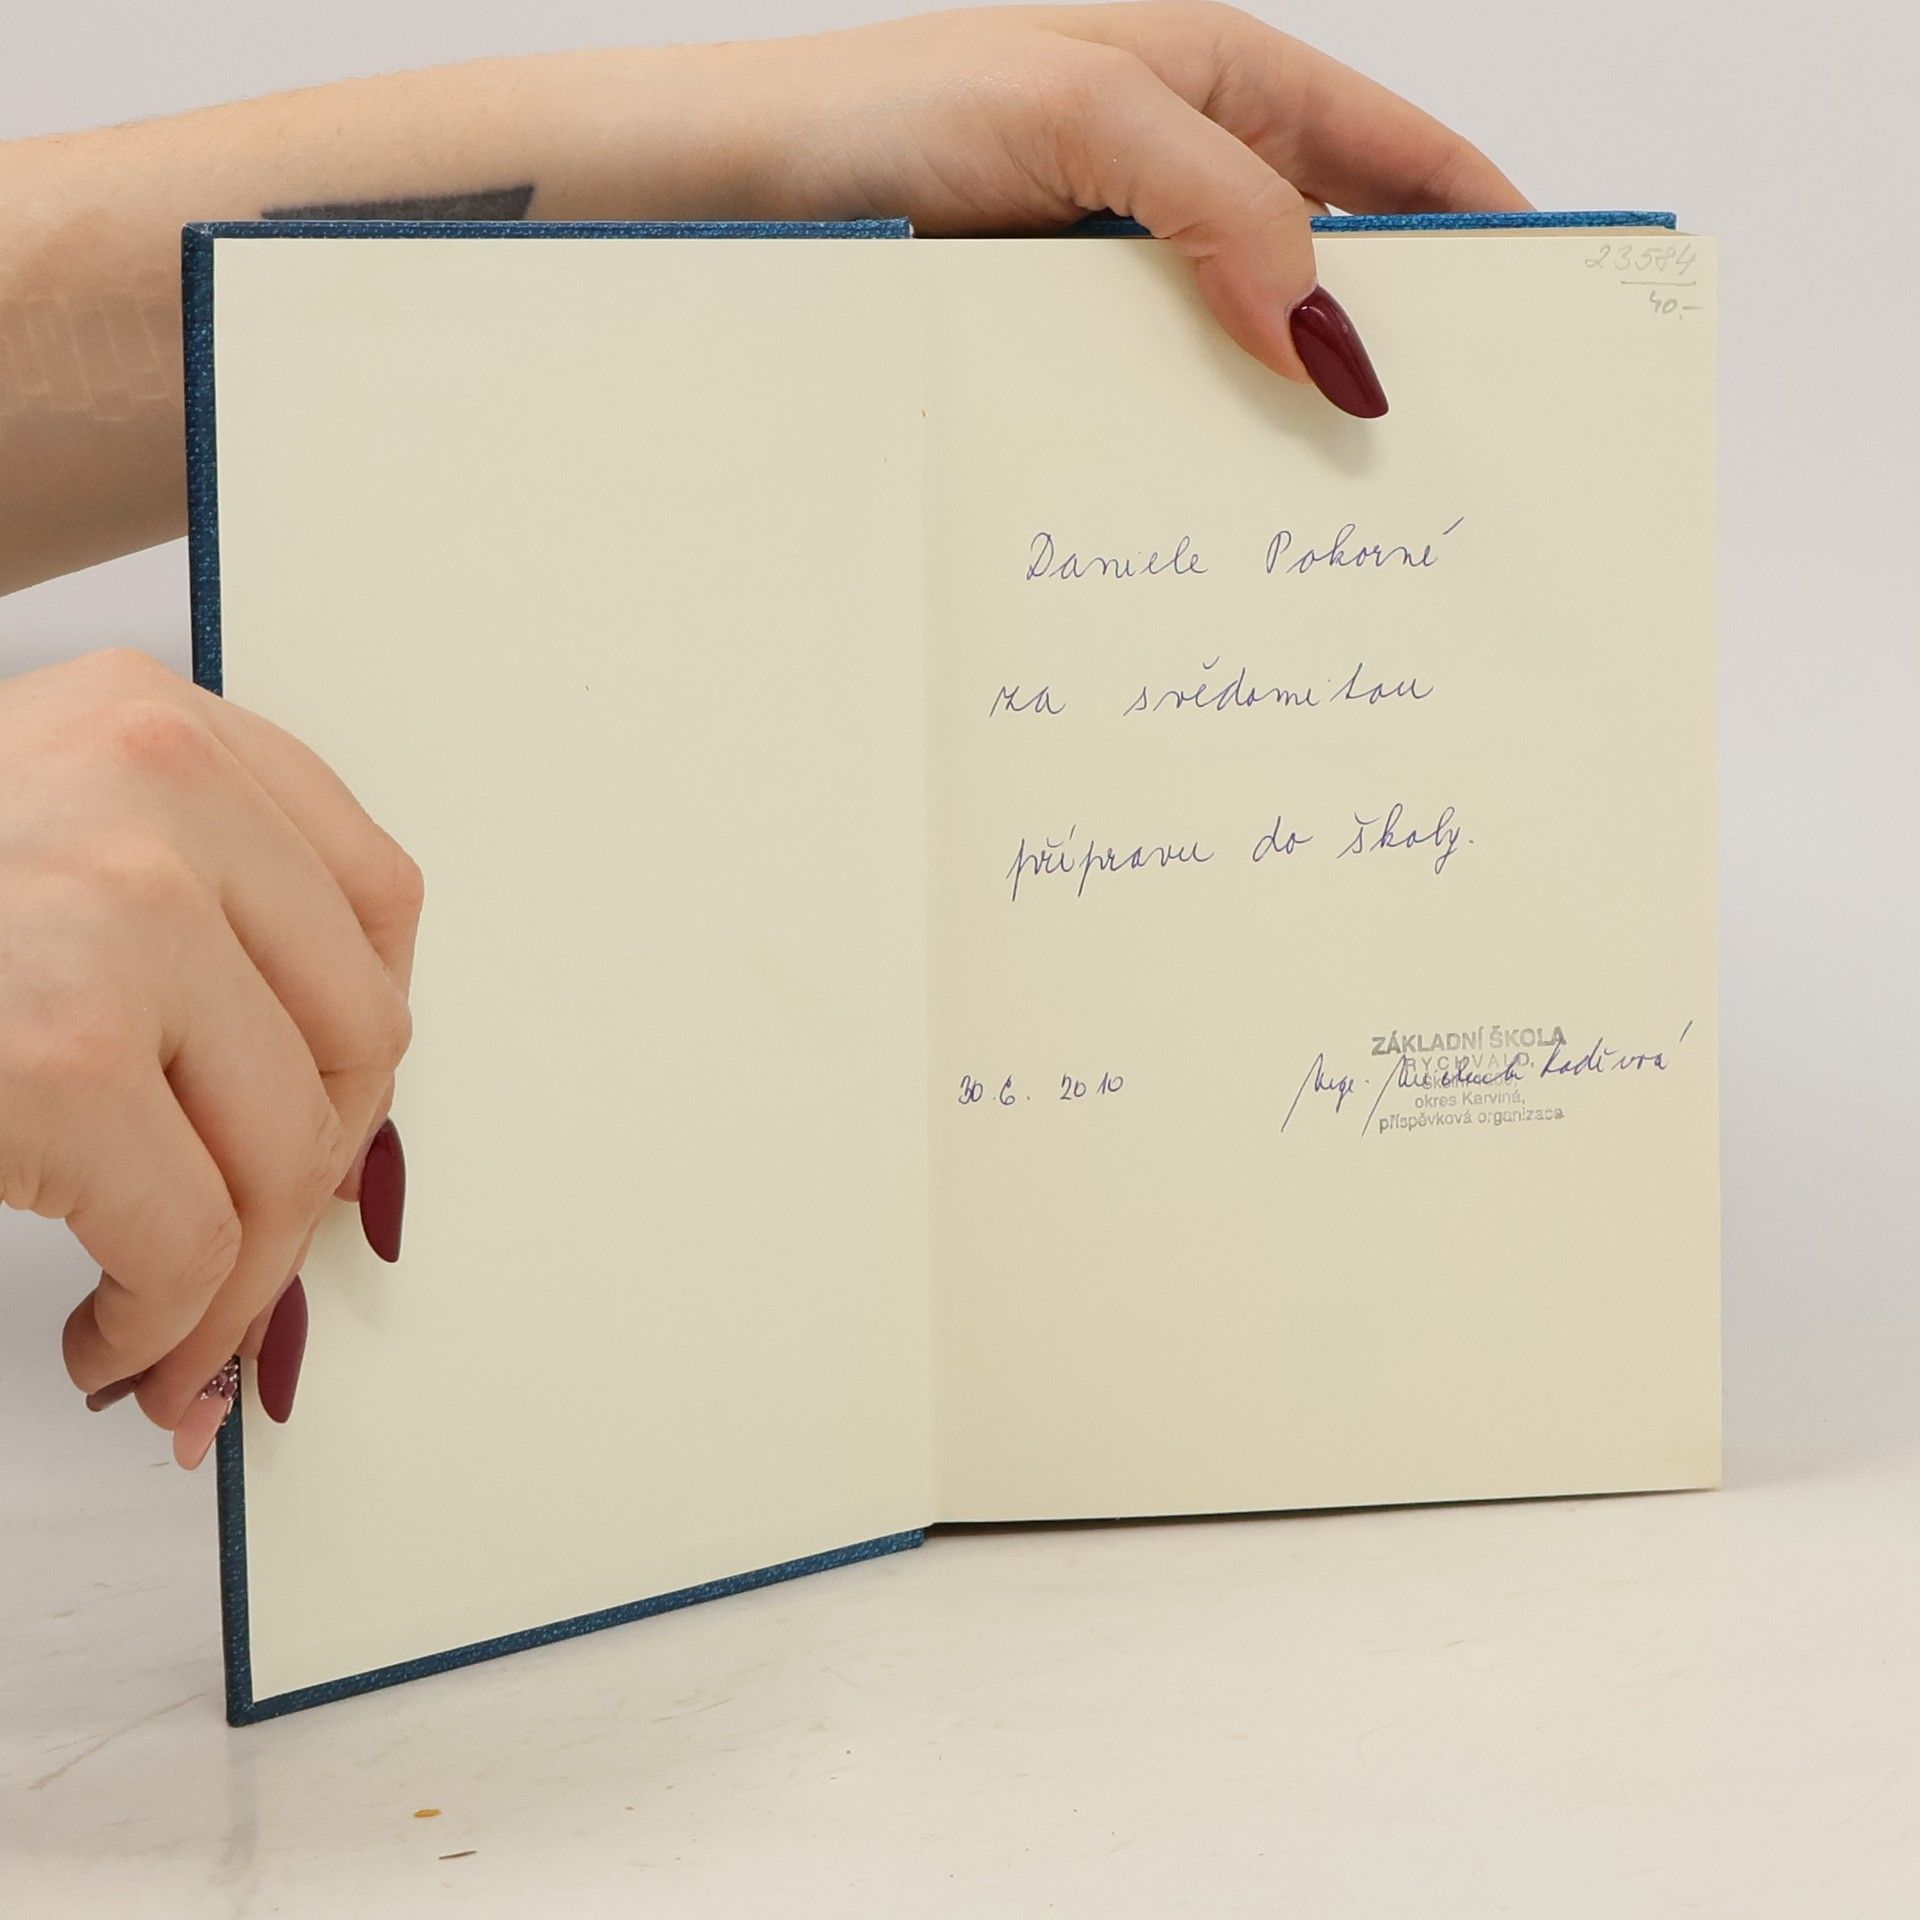 23584
40.-
Daniele Pokorné
za svědomitou
přípravu do školy.
30.6. 2010
Mgr.
ZÁKLADNÍ ŠKOLA
RYCHVALD,
okres Karviná,
příspěvková organizace